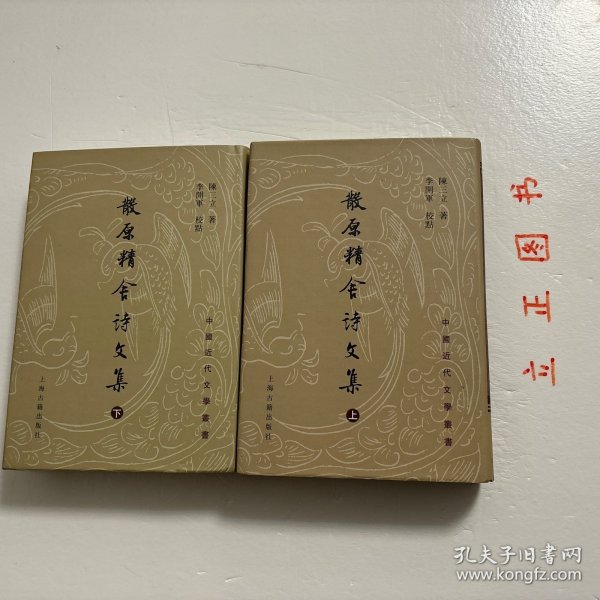 陳三立 著
李開軍 校點
散原精舍詩文集
下
中國近代文學叢書
上海古籍出版社
陳三立 著
李開軍 校點
散原精舍詩文集
上
中國近代文學叢書
上海古籍出版社
立正图书
孔夫子旧书网
www.kongfz.com